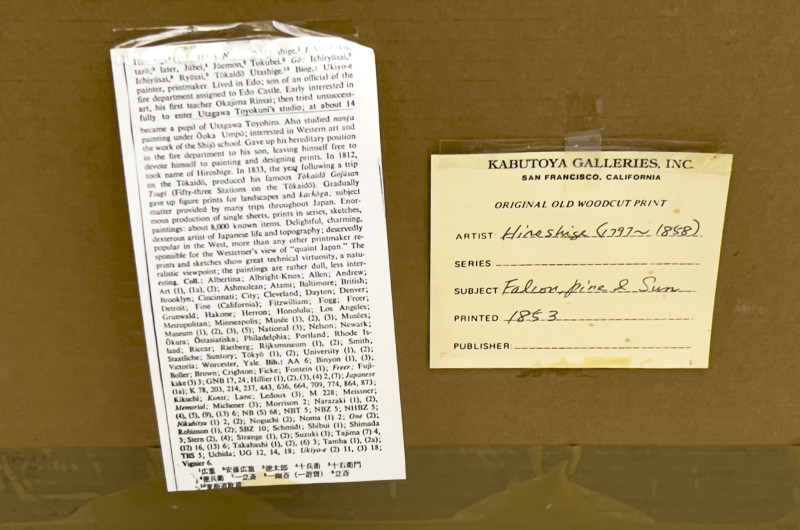 tarō;³ later, Jūbei,⁴ Jūemon,⁵ Tokubei.⁶ Gō: Ichiryūsai,⁷
Ichiyūsai,⁸ Ryūsai,⁹ Tōkaidō Utashige.¹⁰ Biog.: Ukiyo-e
painter, printmaker. Lived in Edo; son of an official of the
fire department assigned to Edo Castle. Early interested in
art, his first teacher Okajima Rinsai; then tried unsuccess-
fully to enter Utagawa Toyokuni's studio; at about 14
became a pupil of Utagawa Toyohiro. Also studied nanga
painting under Ōoka Umpō; interested in Western art and
the work of the Shijō school. Gave up his hereditary position
in the fire department to his son, leaving himself free to
devote himself to painting and designing prints. In 1812,
took name of Hiroshige. In 1833, the year following a trip
on the Tōkaidō, produced his famous Tōkaidō Gojūsan
Tsugi (Fifty-three Stations on the Tōkaidō). Gradually
gave up figure prints for landscapes and kachōga; subject
matter provided by many trips throughout Japan. Enor-
mous production of single sheets, prints in series, sketches,
paintings: about 8,000 known items. Delightful, charming,
dexterous artist of Japanese life and topography; deservedly
popular in the West, more than any other printmaker re-
sponsible for the Westerner's view of "quaint Japan." The
prints and sketches show great technical virtuosity, a natu-
ralistic viewpoint; the paintings are rather dull, less inter-
esting. Coll.: Albertina, Albright-Knox; Allen; Andrew;
Art (1), (1a), (7); Ashmolean; Atami; Baltimore; British;
Brooklyn; Cincinnati; City; Cleveland; Dayton; Denver;
Detroit; Fine (California); Fitzwilliam; Fogg; Freer;
Grunwald; Hakone; Herron; Honolulu; Los Angeles;
Metropolitan; Minneapolis; Musée (1), (2), (3); Musées;
Museum (1), (2), (3), (5); National (3); Nelson; Newark;
Ōkura; Östasiatiska; Philadelphia; Portland; Rhode Is-
land; Riccar; Rietberg; Rijksmuseum (1), (2); Smith;
Staatliche; Suntory; Tōkyō (1), (2); University (1), (2);
Victoria; Worcester, Yale. Bib.: AA 6; Binyon (1), (3);
Boller; Brown; Crighton; Ficke; Fontein (1); Freer; Fuji-
kake (3) 3; GNB 17, 24; Hillier (1), (2), (3), (4) 2, (7); Japanese
(1a); K 78, 203, 214, 237, 443, 636, 664, 709, 774, 864, 873;
Kikuchi; Kunst; Lane; Ledoux (3); M 228; Meissner;
Memorial; Michener (3); Morrison 2; Narazaki (1), (2),
(4), (5), (9), (13) 6; NB (S) 68; NBT 5; NBZ 5; NHBZ 5;
Nikuhitsu (1) 2, (2); Noguchi (2); Noma (1) 2; One (2);
Robinson (1), (2); SBZ 10; Schmidt; Shibui (1); Shimada
3; Stern (2), (4); Strange (1), (2); Suzuki (3); Tajima (7) 4,
(12) 16, (13) 6; Takahashi (1), (2), (6) 3; Tamba (1), (2a);
TBS 5; Uchida; UG 12, 14, 18; Ukiyo-e (2) 11, (3) 18;
Vignier 6.
¹広重 ²安藤広重 ³徳太郎 ⁴十兵衛 ⁵十右衛門
⁶徳兵衛 ⁷一立斎 ⁸一幽斎 ⁹立斎
KABUTOYA GALLERIES, INC.
SAN FRANCISCO, CALIFORNIA
ORIGINAL OLD WOODCUT PRINT
ARTIST: Hiroshige (1797~1858)
SERIES:
SUBJECT: Falcon, pine & Sun
PRINTED: 1853
PUBLISHER: